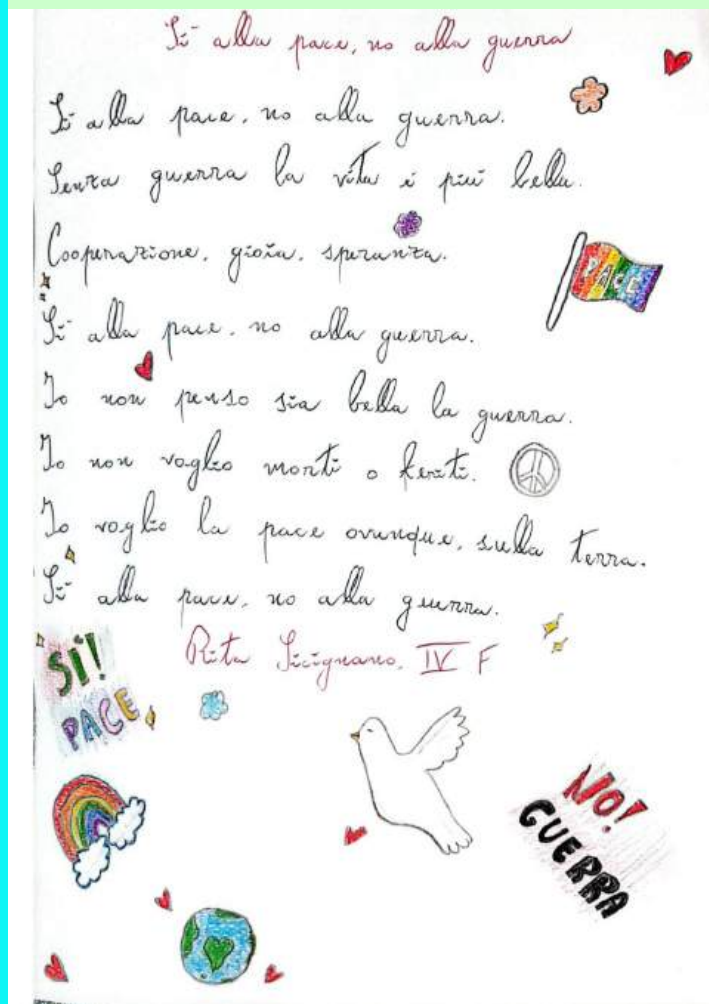 Sì alla pace, no alla guerra
Sì alla pace, no alla guerra.
Senza guerra la vita è più bella.
Cooperazione, gioia, speranza.
PACE
Sì alla pace, no alla guerra.
Io non penso sia bella la guerra.
Io non voglio morti o feriti.
Io voglio la pace ovunque, sulla terra.
Sì alla pace, no alla guerra.
Rita Sicignano, IV F
SÍ!
PACE
NO!
GUERRA